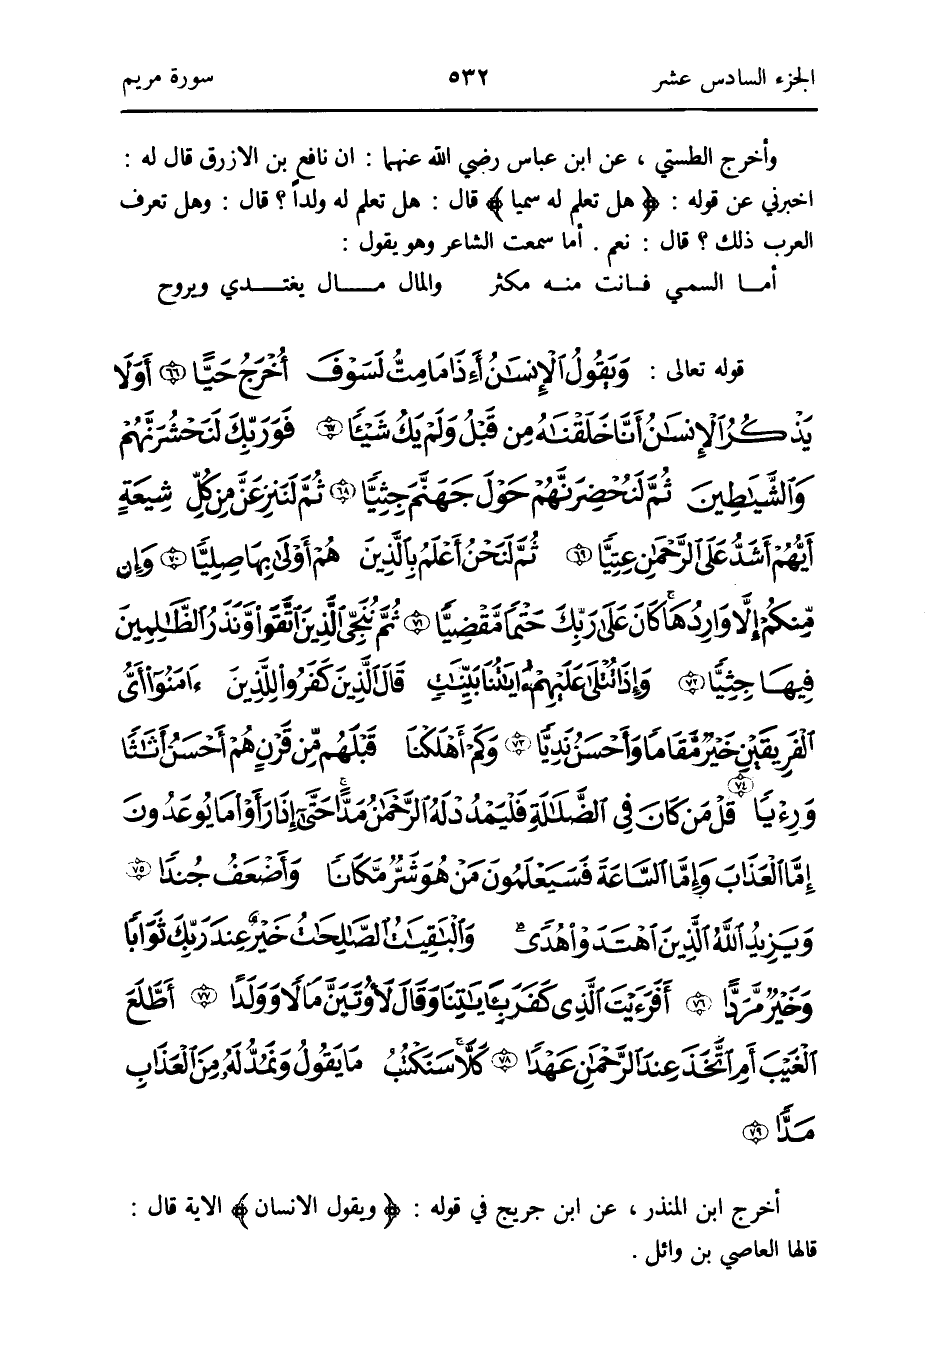 الجزء السادس عشر ٥٣٢ سورة مريم
وأخرج الطستي ، عن ابن عباس رضي الله عنهما : ان نافع بن الازرق قال له :
اخبرني عن قوله : ﴿ هل تعلم له سميا ﴾ قال : هل تعلم له ولداً ؟ قال : وهل تعرف
العرب ذلك ؟ قال : نعم . أما سمعت الشاعر وهو يقول :
أمــا السمـي فـانت منـه مكثر والمال مـــال يغتــدي ويروح
قوله تعالى : وَيَقُولُ ٱلْإِنسَٰنُ أَءِذَا مَا مِتُّ لَسَوْفَ أُخْرَجُ حَيًّا ٦٦ أَوَلَا
يَذْكُرُ ٱلْإِنسَٰنُ أَنَّا خَلَقْنَٰهُ مِن قَبْلُ وَلَمْ يَكُ شَيْـًٔا ٦٧ فَوَرَبِّكَ لَنَحْشُرَنَّهُمْ
وَٱلشَّيَٰطِينَ ثُمَّ لَنُحْضِرَنَّهُمْ حَوْلَ جَهَنَّمَ جِثِيًّا ٦٨ ثُمَّ لَنَنزِعَنَّ مِن كُلِّ شِيعَةٍ
أَيُّهُمْ أَشَدُّ عَلَى ٱلرَّحْمَٰنِ عِتِيًّا ٦٩ ثُمَّ لَنَحْنُ أَعْلَمُ بِٱلَّذِينَ هُمْ أَوْلَىٰ بِهَا صِلِيًّا ٧٠ وَإِن
مِّنكُمْ إِلَّا وَارِدُهَا ۚ كَانَ عَلَىٰ رَبِّكَ حَتْمًا مَّقْضِيًّا ٧١ ثُمَّ نُنَجِّى ٱلَّذِينَ ٱتَّقَوا۟ وَّنَذَرُ ٱلظَّٰلِمِينَ
فِيهَا جِثِيًّا ٧٢ وَإِذَا تُتْلَىٰ عَلَيْهِمْ ءَايَٰتُنَا بَيِّنَٰتٍ قَالَ ٱلَّذِينَ كَفَرُوا۟ لِلَّذِينَ ءَامَنُوٓا۟ أَىُّ
ٱلْفَرِيقَيْنِ خَيْرٌ مَّقَامًا وَأَحْسَنُ نَدِيًّا ٧٣ وَكَمْ أَهْلَكْنَا قَبْلَهُم مِّن قَرْنٍ هُمْ أَحْسَنُ أَثَٰثًا
وَرِءْيًا ٧٤ قُلْ مَن كَانَ فِى ٱلضَّلَٰلَةِ فَلْيَمْدُدْ لَهُ ٱلرَّحْمَٰنُ مَدًّا ۚ حَتَّىٰٓ إِذَا رَأَوْا۟ مَا يُوعَدُونَ
إِمَّا ٱلْعَذَابَ وَإِمَّا ٱلسَّاعَةَ فَسَيَعْلَمُونَ مَنْ هُوَ شَرٌّ مَّكَانًا وَأَضْعَفُ جُندًا ٧٥
وَيَزِيدُ ٱللَّهُ ٱلَّذِينَ ٱهْتَدَوْا۟ هُدًى ۗ وَٱلْبَٰقِيَٰتُ ٱلصَّٰلِحَٰتُ خَيْرٌ عِندَ رَبِّكَ ثَوَابًا
وَخَيْرٌ مَّرَدًّا ٧٦ أَفَرَءَيْتَ ٱلَّذِى كَفَرَ بِـَٔايَٰتِنَا وَقَالَ لَأُوتَيَنَّ مَالًا وَوَلَدًا ٧٧ أَطَّلَعَ
ٱلْغَيْبَ أَمِ ٱتَّخَذَ عِندَ ٱلرَّحْمَٰنِ عَهْدًا ٧٨ كَلَّا ۚ سَنَكْتُبُ مَا يَقُولُ وَنَمُدُّ لَهُۥ مِنَ ٱلْعَذَابِ
مَدًّا ٧٩
أخرج ابن المنذر ، عن ابن جريج في قوله : ﴿ ويقول الانسان ﴾ الاية قال :
قالها العاصي بن وائل .